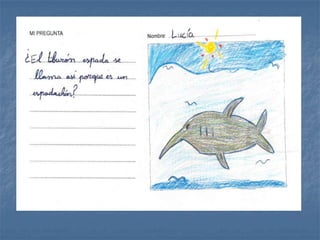 MI PREGUNTA
Nombre: Lucía
¿El tiburón espada se
llama así porque es un
espadachín?